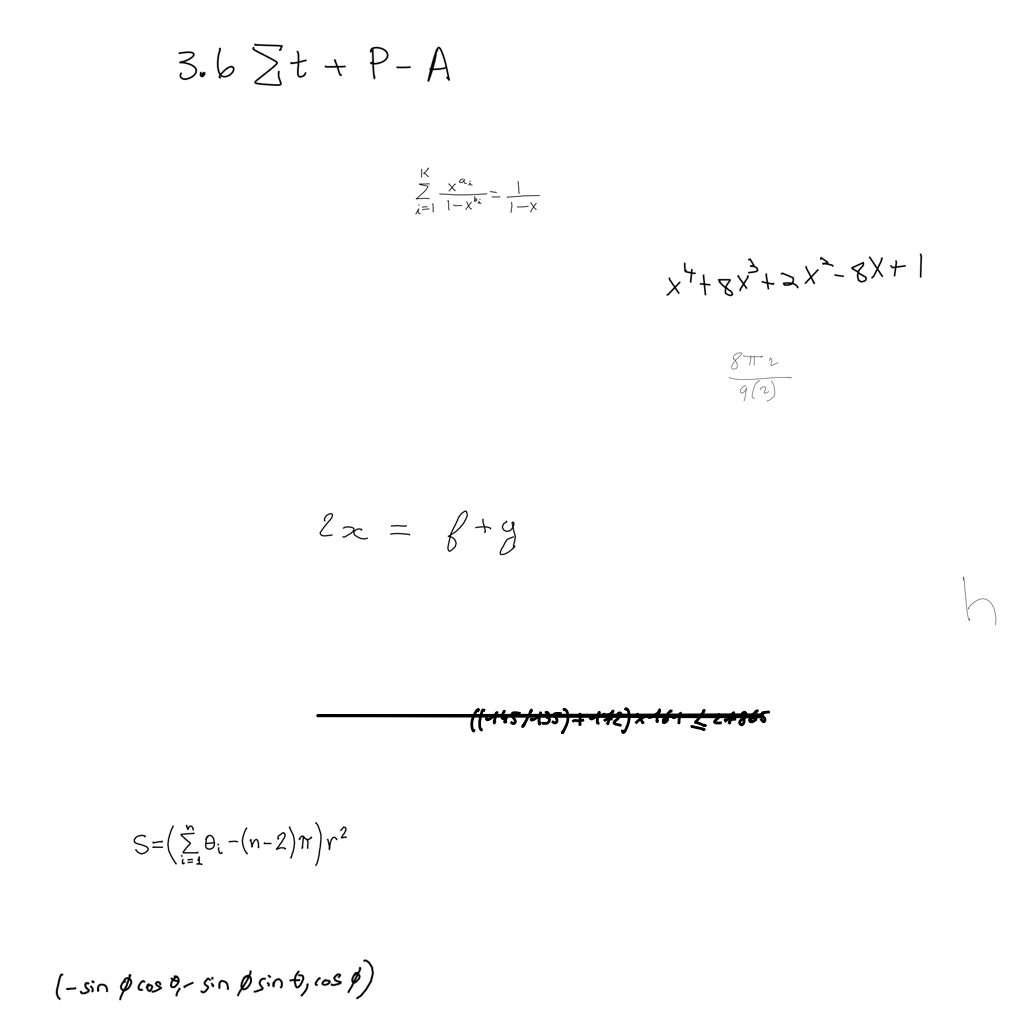 3.6 ∑t + P - A
∑_{i=1}^{K} \frac{x^{a_i}}{1-x^{b_i}} = \frac{1}{1-x}
x^4+8x^3+2x^2-8x+1
\frac{8π2}{9(2)}
2x = f+g
h
S=(∑_{i=1}^{n} θ_i-(n-2)π)r^2
(-sin ϕ cos θ,- sin ϕ sin θ, cos ϕ)